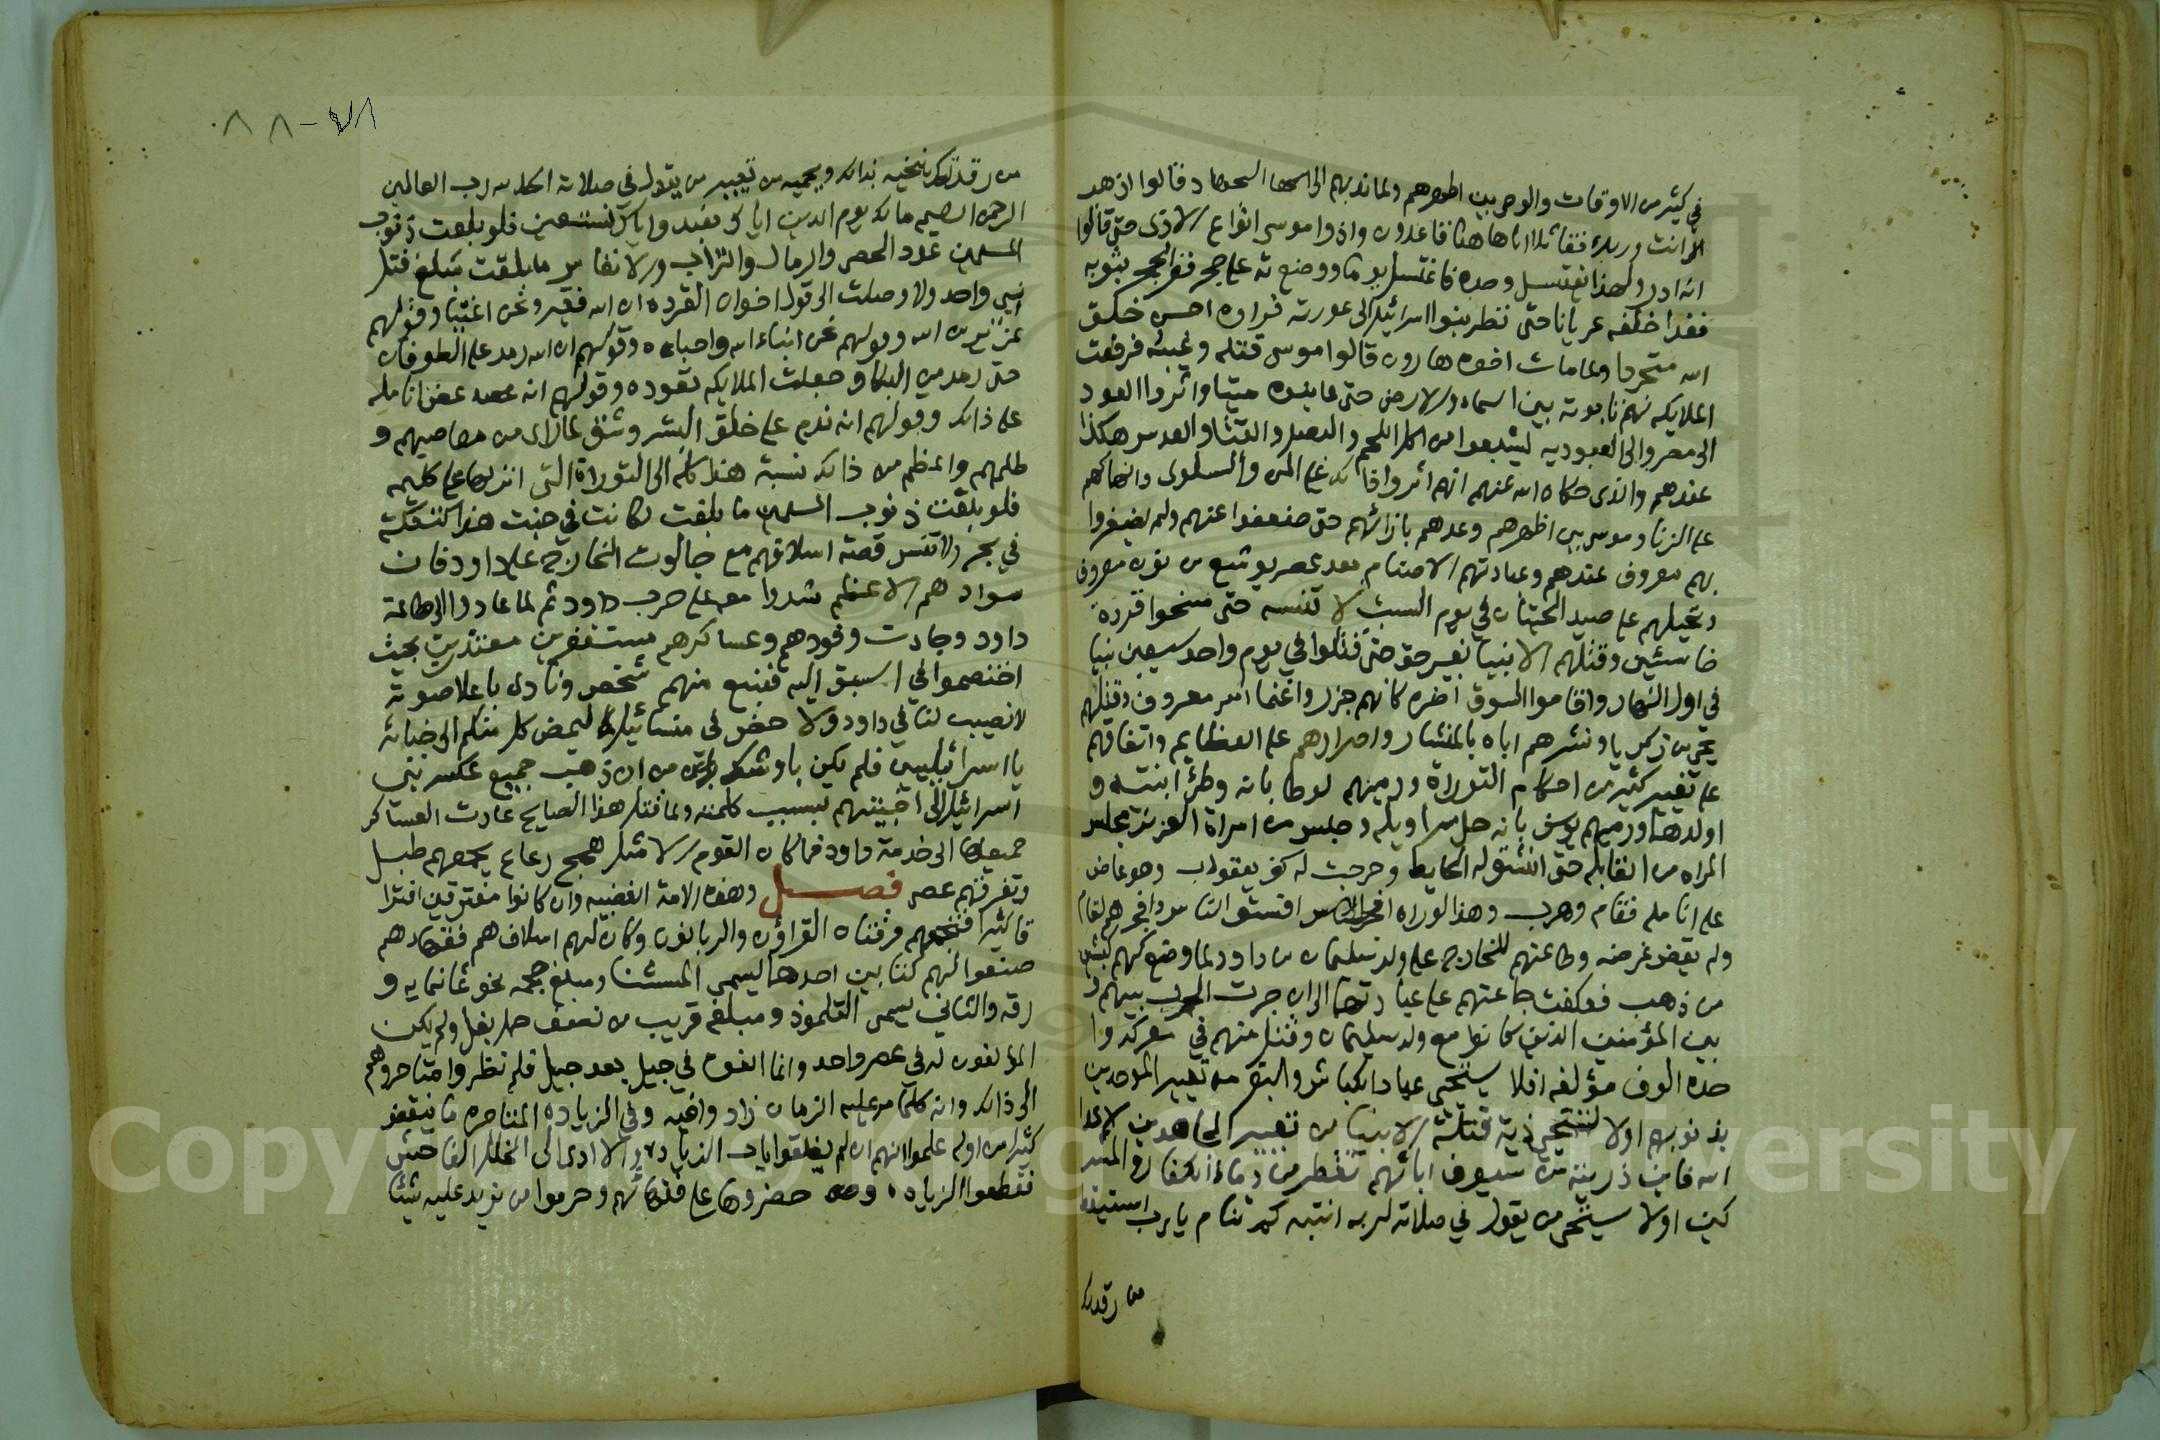 في كثير من الاوقات والوحي بين اظهرهم ولما ندبهم الى الجهاد قالوا اذهب
انت وربك فقاتلا انا هاهنا قاعدون واذوا موسى انواع الاذى حتى قالوا
انه ادر ولهذا يغتسل وحده فاغتسل يوما ووضع ثوبه على حجر ففر الحجر بثوبه
فعدا خلفه عريانا حتى نظر بنوا اسرائيل الى عورته فراوه احسن خلق
الله متجردا ولما مات اخوه هارون قالوا موسى قتله وغيبه فرفعت
الملايكه لهم تابوته بين السماء والارض حتى عاينوه ميتا واثروا العود
الى مصر والى العبوديه ليشبعوا من اكل اللحم والبصل والقثا والعدس هكذا
عندهم والذي حكاه الله عنهم انهم اثروا ذلك على المن والسلوى وانهماكهم
على الزنا وموسى بين اظهرهم وعدوهم بازائهم حتى ضعفوا عنهم ولم يظفروا
بهم معروف عندهم وعبادتهم الاصنام بعد عصر يوشع بن نون معروف
وتحيلهم على صيد الحيتان في يوم السبت لا تنسه حتى مسخوا قردة
خاسئين وقتلهم الانبيا بغير حق حتى قتلوا في يوم واحد سبعين نبيا
في اول النهار واقاموا السوق اخره كانهم جزروا غنما امر معروف وقتلهم
يحيى بن زكريا ونشرهم اباه بالمنشار واصرارهم على العظايم واتفاقهم
على تغيير كثير من احكام التوراة ورميهم لوطا بانه وطئ ابنتيه و
اولدهما ورميهم يوسف بانه حل سراويله وجلس من امراة العزيز مجلس
المراه من القابله حتى انشق له الحايط وخرجت له كف يعقوب وهو عاض
على انامله فقام وهرب وهذا لو راه افسق الناس وافجرهم لقام
ولم يقض غرضه وطاعتهم للخارج على ولد سليمان بن داود لما وضع لهم كبشين
من ذهب فعكفت جماعتهم على عبادتهما الى ان جرت الحرب بينهم و
بين المؤمنين الذين كانوا مع ولد سليمان وقتل منهم في معركة وا
حدة الوف مؤلفه افلا يستحي عباد الكباش والبقر من تعيير الموحدين
بذنوبهم اولا تستحي ذرية قتلة الانبيا من تعيير المجاهدين لاعدا
الله فاين ذرية من سيوف ابائهم تقطر من دماء الكفار والمشر
كين اولا يستحي من يقول في صلاته لربه انتبه كم تنام يا رب استيقظ
من رقدتك
٨٨-٧٨
من رقدتك ينخيه بذلك ويحميه من تعيير من يقول في صلاته الحمد لله رب العالمين
الرحمن الرحيم مالك يوم الدين اياك نعبد واياك نستعين فلو بلغت ذنوب
المسلمين عدد الحصى والرمال والتراب والانفاس ما بلغت مبلغ قتل
نبي واحد ولا وصلت الى قول اخوان القرده ان الله فقير ونحن اغنيا وقولهم
عزير بن الله وقولهم نحن ابناء الله واحباءه وقولهم ان الله رمد على الطوفان
حتى رمد من البكا وجعلت الملايكه تعوده وقولهم انه عض انامله
على ذلك وقولهم انه ندم على خلق البشر وشق لما راى من معاصيهم و
ظلمهم واعظم من ذلك نسبة هذا كله الى التوراة التي انزلها على كليمه
فلو بلغت ذنوب المسلمين ما بلغت لكانت في جنب هذا كتفلة
في بحر ولا تنس قصة اسلافهم مع جالوت الخارج على داود فان
سوادهم الاعظم شدوا معه على حرب داود ثم لما عادوا الى طاعة
داود وجاءت وفودهم وعساكرهم مستغفرين معتذرين بحيث
اختصموا في السبق اليه فنبع منهم شخص ونادى باعلا صوته
لا نصيب لنا في داود ولا حض في منسائيل ليمض كل منكم الى خبائه
يا اسرائيليين فلم يكن باوشك من ان ذهب جميع عسكر بني
اسرائيل الى اخبيتهم بسبب كلمته ولما قتل هذا الصايح عادت العساكر
جميعها الى خدمة داود فما كان القوم الا مثل همج رعاع يجمعهم طبل
وتفرقهم عصى فصل وهذه الامة الغضبيه وان كانوا مفترقين افترا
قا كثيرا فيجمعهم فرقتان القراؤن والربانون وكان لهم اسلاف هم فقهاءهم
صنعوا لهم كتابين احدهما يسمى المشنا ومبلغ حجمه نحو ثمانمايه و
رقه والثاني يسمى التلمود ومبلغه قريب من نصف حمل بغل ولم يكن
المؤلفون له في عصر واحد وانما الفوه في جيل بعد جيل فلم نظروا متاخروهم
الى ذلك وانه كلما مر عليه الزمان زادوا فيه وفي الزيادة المتاخره ما ينقض
كثيرا من اوله علموا انهم ان لم يغلقوا باب الزيادة والا ادى الى الخلل الفاحش
فقطعوا الزياده وحضروها على فقهائهم وحرموا من يزيد عليه شيئا
Copyright © King Saud University